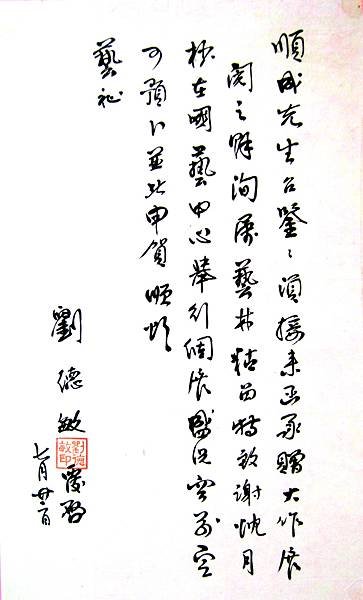 順成先生台鑒：頃接来函承贈大作展
閱之餘洵屬藝林精品特致谢忱月
杪在國藝中心舉行個展盛況空前定
可預卜並此申賀順頌
藝祉
劉德敏復啓
劉德敏印
七月廿二日